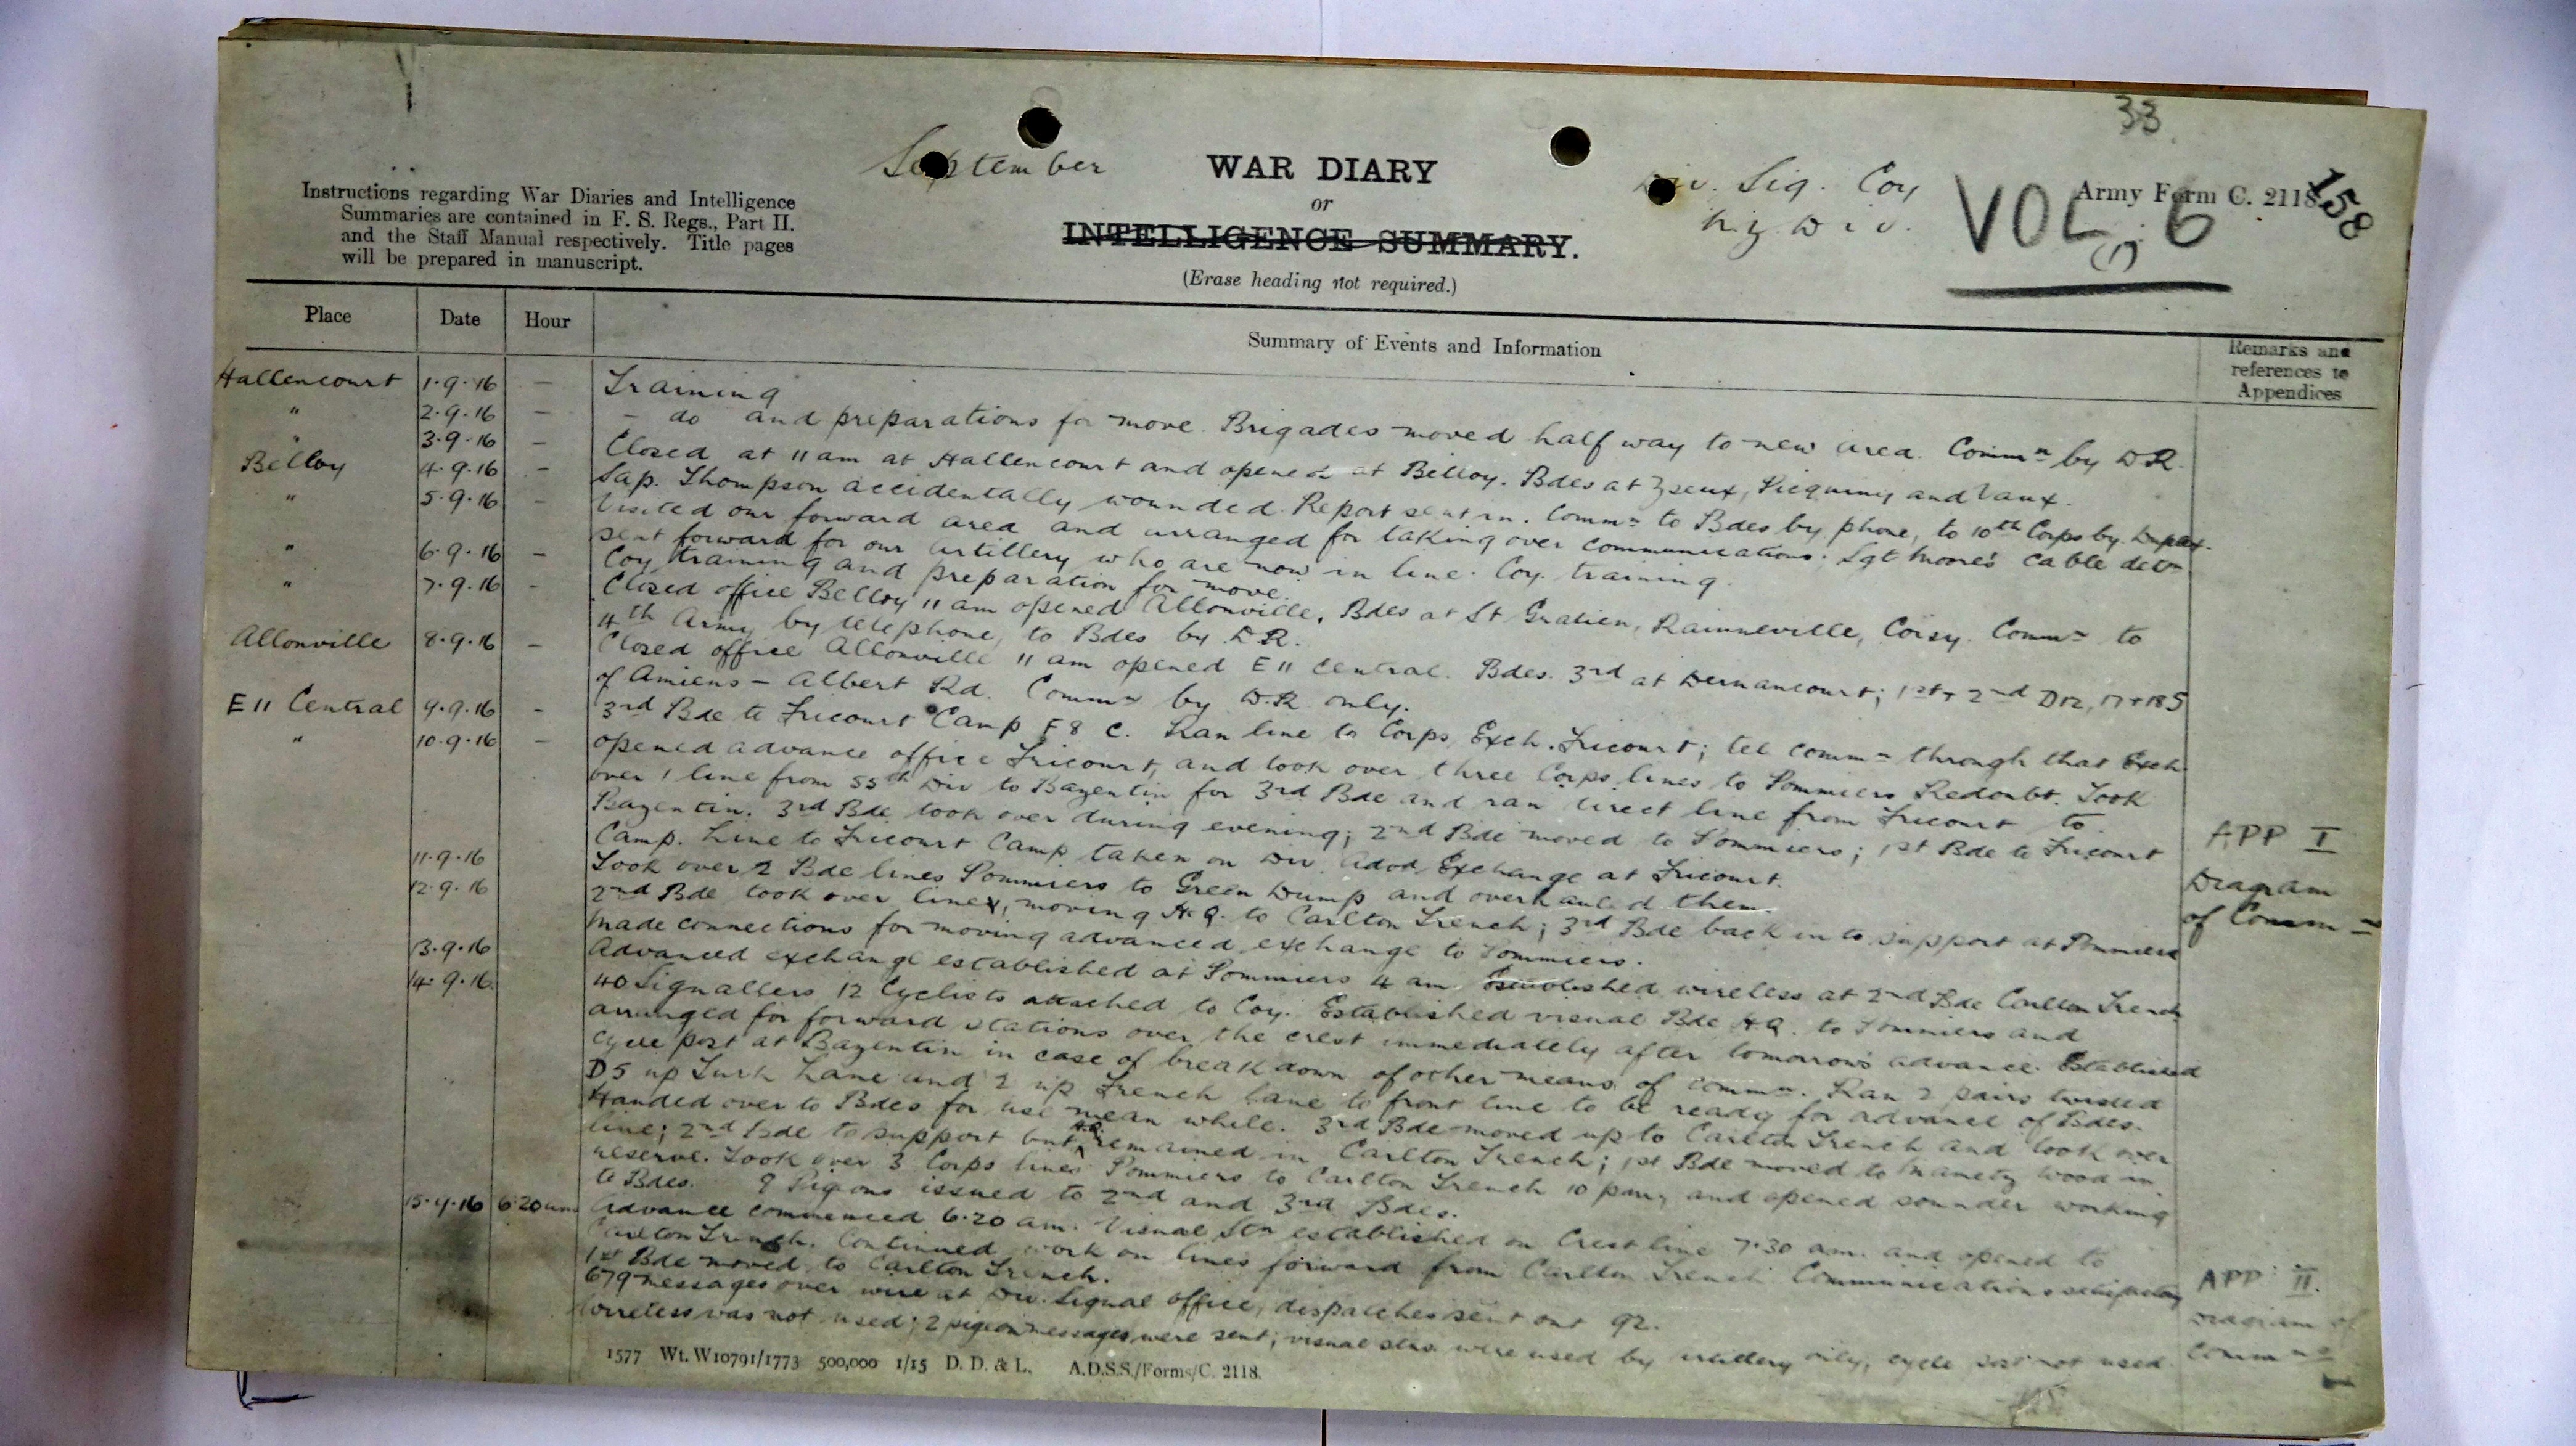 33
158
September
WAR DIARY
or
INTELLIGENCE SUMMARY.
(Erase heading not required.)
Instructions regarding War Diaries and Intelligence
Summaries are contained in F. S. Regs., Part II.
and the Staff Manual respectively. Title pages
will be prepared in manuscript.
Div. Sig. Coy
N.Z. Div.
Army Form C. 2118.
VOL 6
(1)
Place Date Hour Summary of Events and Information Remarks and references to Appendices
Hallencourt 1.9.16 — Training
" 2.9.16 — - do and preparations for move. Brigades moved half way to new area. Commn by D.R.
" 3.9.16 — Closed at 11 am at Hallencourt and opened at Belloy. Bdes at Yzeux, Picquiny and Vaux.
Belloy 4.9.16 - Sap. Thompson accidentally wounded. Report sent in. Commn to Bdes by phone, to 10th Corps by Duplex.
" 5.9.16 - Visited our forward area and arranged for taking over communications. Sgt Moore's cable detn
sent forward for our Artillery who are now in line. Coy. training.
" 6.9.16 - Coy training and preparation for move.
" 7.9.16 - Closed office Belloy 11 am opened Allonville, Bdes at St Gratien, Rainneville, Coisy. Commn to
4th Army by telephone, to Bdes by D.R.
Allonville 8.9.16 - Closed office Allonville 11 am opened E 11 Central. Bdes. 3rd at Dernancourt; 1st + 2nd D12, 17 + 18 S
of Amiens - Albert Rd. Commn by D.R. only.
E 11 Central 9.9.16 - 3rd Bde to Fricourt Camp F 8 C. Ran line to Corps Exch. Fricourt; tel commn through that Exch.
" 10.9.16 - opened advance office Fricourt, and took over three Corps lines to Pommiers Redoubt. Took
over 1 line from 55th Div to Bazentin for 3rd Bde and ran direct line from Fricourt to
Bazentin. 3rd Bde took over during evening; 2nd Bde moved to Pommiers; 1st Bde to Fricourt
Camp. Line to Fricourt Camp taken on Div Advd Exchange at Fricourt.
APP I
Diagram
of Commn
11.9.16 Took over 2 Bde lines Pommiers to Green Dump and overhauled them.
12.9.16 2nd Bde took over lines, moving H.Q. to Carlton Trench; 3rd Bde back in to support at Pommiers
Made connections for moving advanced exchange to Pommiers.
13.9.16 Advanced exchange established at Pommiers 4 am Established wireless at 2nd Bde Carlton Trench
14.9.16 40 Signallers 12 Cyclists attached to Coy. Established visual Bde HQ. to Pommiers and
arranged for forward stations over the crest immediately after tomorrow's advance. Established
cycle post at Bazentin in case of breakdown of other means of commn. Ran 2 pairs twisted
D5 up Turk Lane and 2 up French Lane to front line to be ready for advance of Bdes.
Handed over to Bdes for use mean while. 3rd Bde moved up to Carlton Trench and took over
line; 2nd Bde to support but H.Q. remained in Carlton Trench; 1st Bde moved to Mametz Wood in
reserve. Took over 3 Corps lines Pommiers to Carlton Trench 10 pair and opened sounder working
to Bdes. 9 Pigeons issued to 2nd and 3rd Bdes.
15.9.16 6.20 am Advance commenced 6.20 am. Visual Stn established on Crest line 7.30 am. and opened to
Carlton Trench. Continued work on lines forward from Carlton Trench. Communications satisfactory
1st Bde moved to Carlton Trench.
679 messages over wire at Div. Signal office, dispatches sent out 92.
Wireless was not used; 2 pigeon messages were sent; visual stns were used by artillery only, cycle post not used
APP II.
Diagram of
Commns
1577 Wt. W10791/1773 500,000 1/15 D. D. & L. A.D.S.S./Forms/C. 2118.